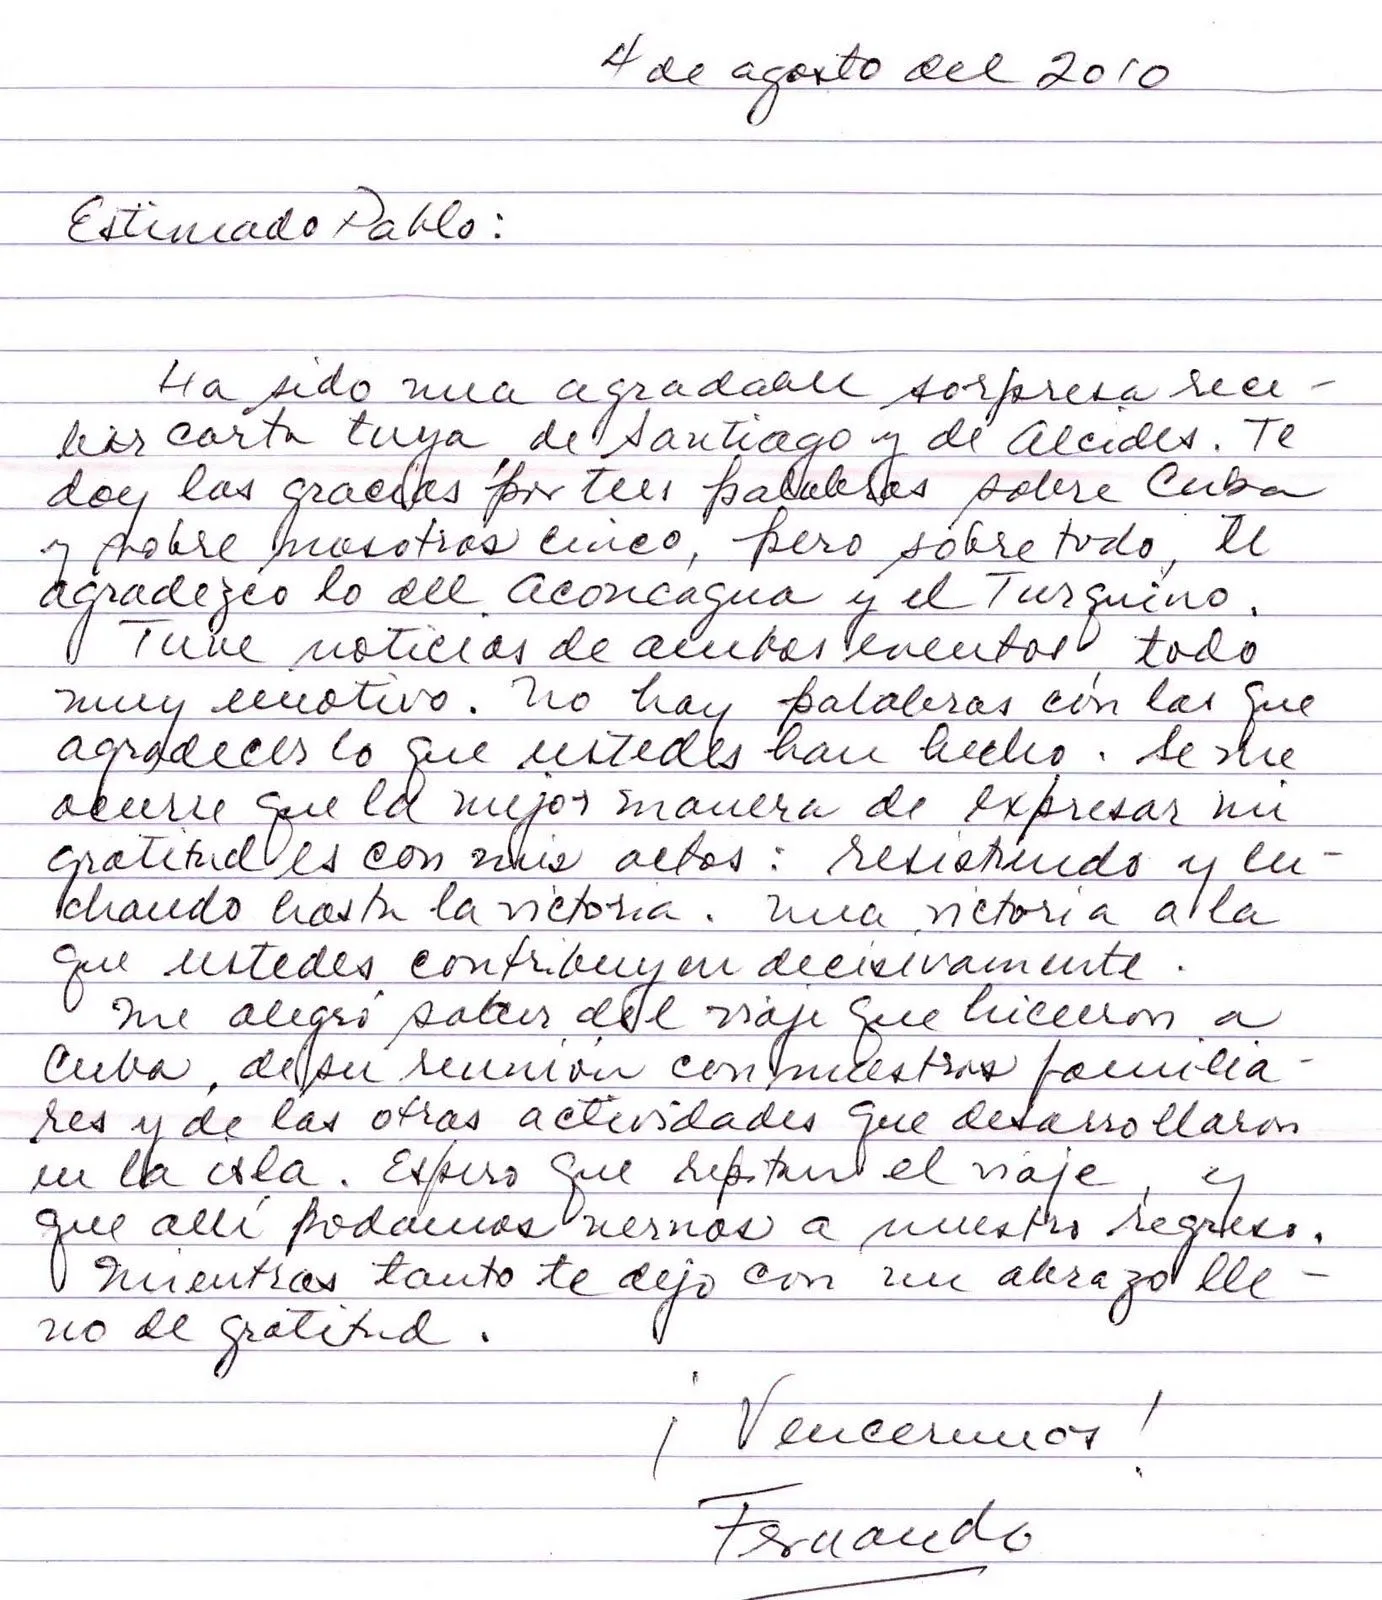 4 de agosto del 2010
Estimado Pablo:
Ha sido una agradable sorpresa reci-
bir carta tuya, de Santiago y de Alcides. Te
doy las gracias por tus palabras sobre Cuba
y sobre nosotros cinco, pero sobre todo, te
agradezco lo del Aconcagua y el Turquino.
Tuve noticias de ambos eventos, todo
muy emotivo. No hay palabras con las que
agradecer lo que ustedes han hecho. Se me
ocurre que la mejor manera de expresar mi
gratitud es con mis actos: resistiendo y lu-
chando hasta la victoria. Una victoria a la
que ustedes contribuyen decisivamente.
Me alegró saber del viaje que hicieron a
Cuba, de su reunión con nuestros familia-
res y de las otras actividades que desarrollaron
en la isla. Espero que repitan el viaje, y
que allí podamos vernos a nuestro regreso.
Mientras tanto te dejo con un abrazo lle-
no de gratitud.
¡Venceremos!
Fernando